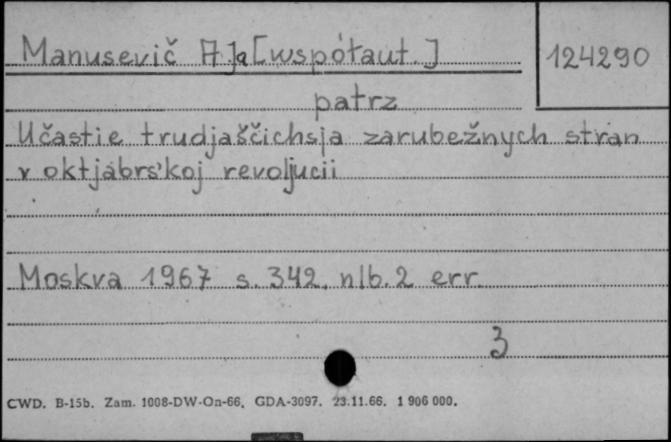 Manusevič A.Ja [współaut.]
124290
patrz
Učastie trudjaščichsja zarubežnych stran
v oktjabrs'koj revoljucii
Moskva 1967 s. 342, nlb. 2 err.
3
CWD. B-15b. Zam. 1008-DW-On-66. GDA-3097. 23.11.66. 1 906 000.